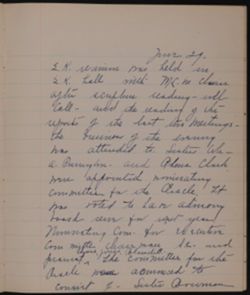 June 29.
L.K. reunion was held in
L.K. hall with M.C. in Chair
after scripture reading - roll
Call - and the reading of the
reports of the last two meetings -
the business of the evening
was attended to Sister
a and Alma Clark
were appointed nominating
committee for the Circle. It
was voted to have advisory
board serve for next year
Nominating Com. for
Committee Chairman
present. The Committee for the
Circle was announced to
consist of - Sister Bowman